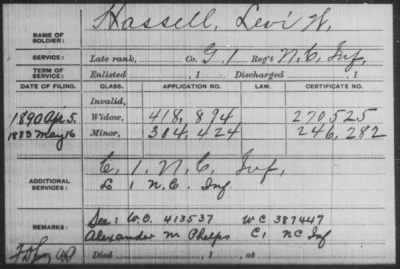 NAME OF SOLDIER: Hassell, Levi W.
SERVICE: Late rank, Co. G 1 Reg't N.C. Inf,
TERM OF SERVICE: Enlisted , 1 Discharged , 1
DATE OF FILING. CLASS. APPLICATION NO. LAW. CERTIFICATE NO.
Invalid,
1890 Apr 5. Widow, 418,894 270525
1883 May 16 Minor, 304,424 246,282
ADDITIONAL SERVICES: C, 1, N.C. Inf,
L 1 N.C. Inf
REMARKS: See: W.O. 413537 WC 387447
Alexander M Phelps C, NC Inf
Died , 1 , at